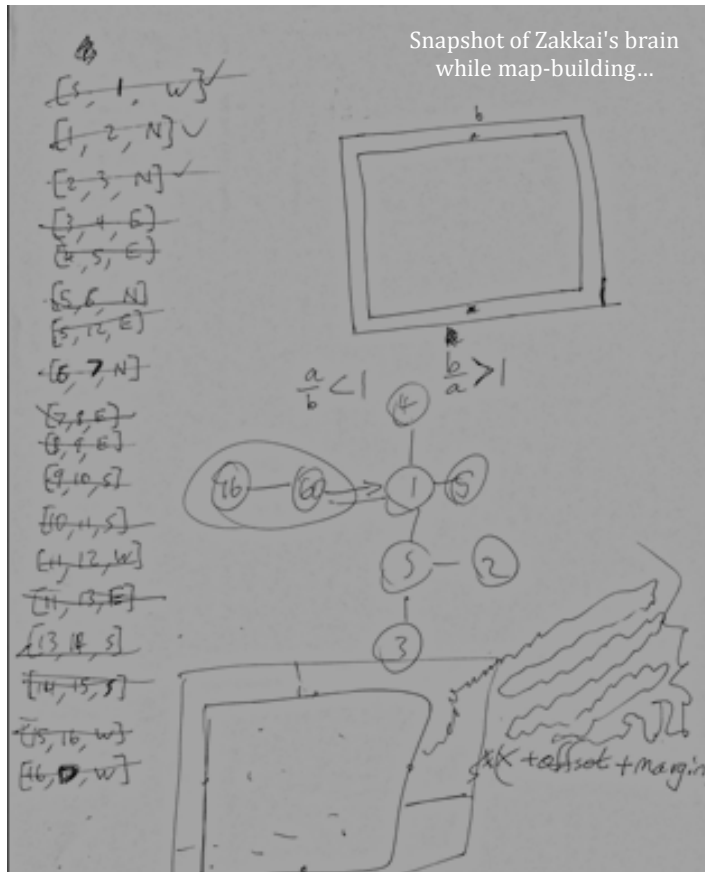 Snapshot of Zakkai's brain
while map-building...
[5, 1, W] ✓
[1, 2, N] ✓
[2, 3, N] ✓
[3, 4, E]
[4, 5, E]
[5, 6, N]
[5, 12, E]
[6, 7, N]
[7, 8, E]
[8, 9, E]
[9, 10, S]
[10, 11, S]
[11, 12, W]
[11, 13, E]
[13, 14, S]
[14, 15, S]
[15, 16, W]
[16, 0, W]
b
a
a/b < 1
b/a > 1
4
16
60
1
5
5
2
3
+ offset + margin